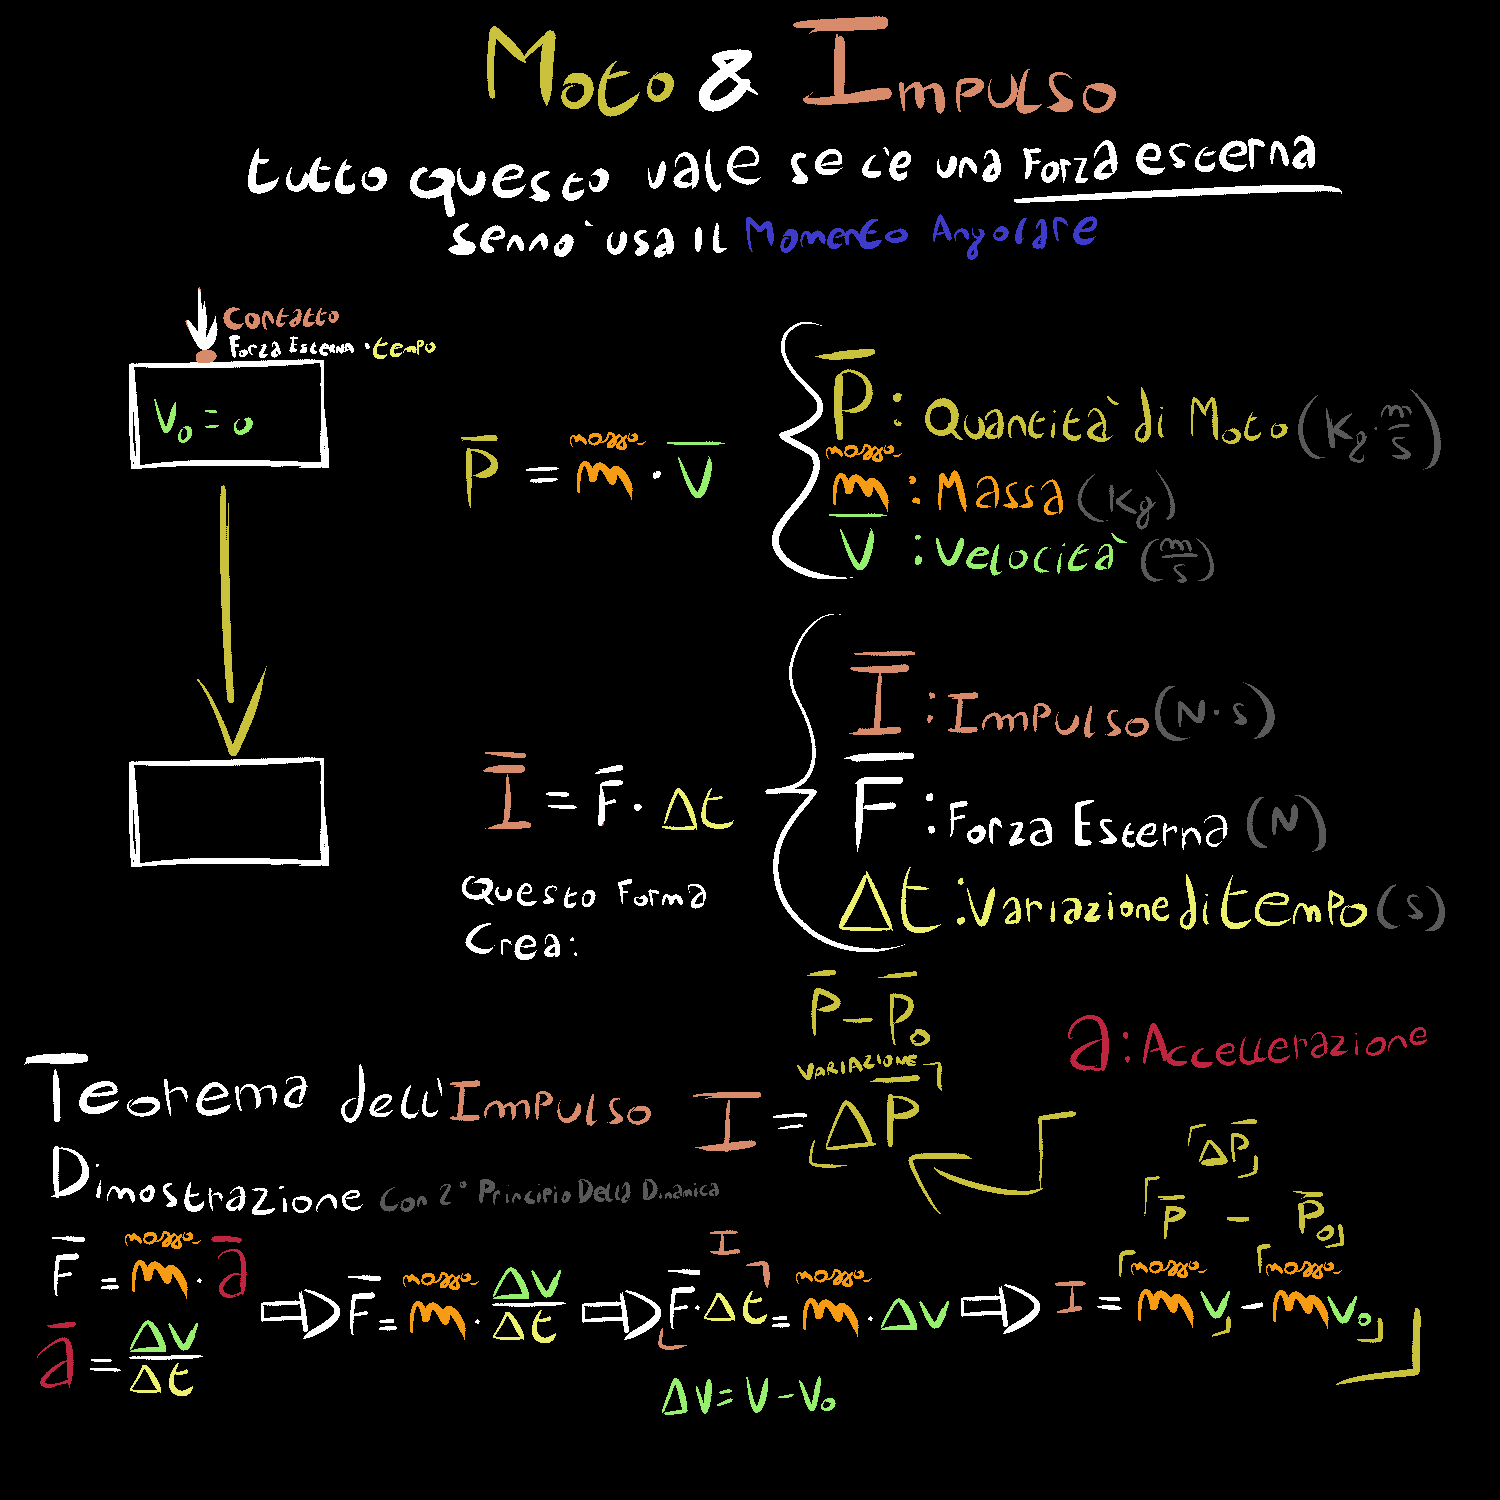 Moto & Impulso
tutto questo vale se c'è una Forza esterna
sennò usa il Momento Angolare
Contatto
Forza Esterna · tempo
V₀ = 0
massa
P̅ = m · V̅
P̅ : Quantità di Moto (Kg · m/s)
massa
m : Massa (Kg)
V̅ : Velocità (m/s)
I̅ : Impulso (N · s)
F̅ : Forza Esterna (N)
Δt : Variazione di tempo (s)
I̅ = F̅ · Δt
Questo Forma
Crea:
P̅ - P̅₀
VARIAZIONE
Teorema dell'Impulso I = ΔP̅
a : Accellerazione
Dimostrazione Con 2° Principio Della Dinamica
massa
F̅ = m · a̅
a̅ = ΔV/Δt
massa
⇒ F̅ = m · ΔV/Δt
I
massa
⇒ F̅ · Δt = m · ΔV
ΔV = V - V₀
ΔP̅
P̅ - P̅₀
massa massa
⇒ I = mV - mV₀